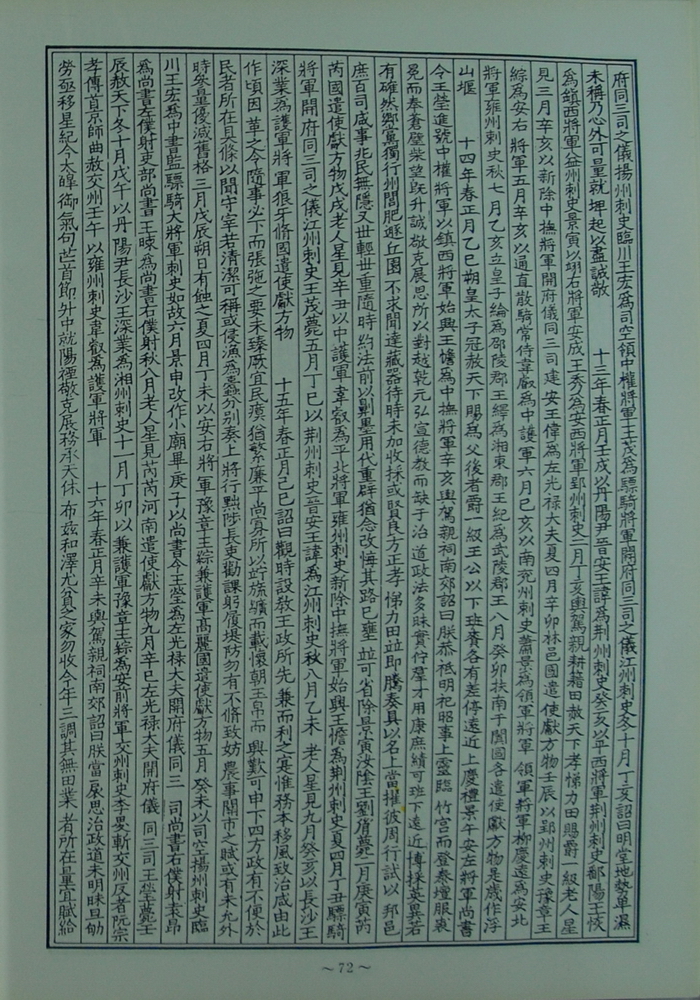 府同三司之儀揚州刺史臨川王宏為司空領中權將軍王茂為驃騎將軍開府同三司之儀江州刺史冬十月丁亥詔曰明堂地勢卑濕
未稱乃心外可量就埤起以盡誠敬　十三年春正月壬戌以丹陽尹晉安王諱為荊州刺史癸亥以平西將軍荊州刺史鄱陽王恢
為鎮西將軍益州刺史景寅以翊右將軍安成王秀為安西將軍郢州刺史二月丁亥輿駕親耕籍田赦天下孝悌力田賜爵一級老人星
見三月辛亥以新除中撫將軍開府儀同三司建安王偉為左光禄大夫夏四月辛卯林邑國遣使獻方物壬辰以郢州刺史豫章王
綜為安右將軍五月辛亥以通直散騎常侍韋叡為中護軍六月己亥以南兗州刺史蕭景為領軍將軍領軍將軍柳慶遠為安北
將軍雍州刺史秋七月乙亥立皇子綸為邵陵郡王繹為湘東郡王紀為武陵郡王八月癸卯扶南于闐國各遣使獻方物是歲作浮
山堰　十四年春正月乙巳朔皇太子冠赦天下賜為父後者爵一級王公以下班賚各有差停遠近上慶禮景午安左將軍尚書
令王瑩進號中權將軍以鎮西將軍始興王憺為中撫將軍辛亥輿駕親祠南郊詔曰朕恭祗明祀昭事上靈臨竹宮而登泰壇服裘
冕而奉蒼璧柴望既升誠敬克展思所以對越乾元弘宣德教而缺于治道政法多昧實佇羣才用康庶績可班下遠近博採英異若
有確然鄉黨獨行州閭肥遯丘園不求聞達藏器待時未加收採或賢良方正孝悌力田並即騰奏具以名上當擢彼周行試以邦邑
庶百司咸事兆民無隱又世輕世重隨時約法前以劓墨用代重辟猶念改悔其路已壅並可省除景寅汝陰王劉胤薨二月庚寅芮
芮國遣使獻方物戊戌老人星見辛丑以中護軍韋叡為平北將軍雍州刺史新除中撫將軍始興王憺為荊州刺史夏四月丁丑驃騎
將軍開府同三司之儀江州刺史王茂薨五月丁巳以荊州刺史晉安王諱為江州刺史秋八月乙未老人星見九月癸亥以長沙王
深業為護軍將軍狼牙脩國遣使獻方物　十五年春正月己巳詔曰觀時設教王政所先兼而利之寔惟務本移風致治咸由此
作頃因革之令隨事必下而張弛之要未臻厥宜民瘼猶繁廉平尚寡所以竚旒纊而載懷朝玉帛而興歎可申下四方政有不便於
民者所在具條以聞守宰若清潔可稱或侵漁為蠹分別奏上將行黜陟長吏勸課躬履堤防勿有不脩致妨農事關市之賦或有未允外
時參量優減舊格三月戊辰朔日有蝕之夏四月丁未以安右將軍豫章王綜兼護軍高麗國遣使獻方物五月癸未以司空揚州刺史臨
川王宏為中書監驃騎大將軍刺史如故六月景申改作小廟畢庚子以尚書令王瑩為左光禄大夫開府儀同三司尚書右僕射袁昂
為尚書左僕射吏部尚書王暕為尚書右僕射秋八月老人星見芮芮河南遣使獻方物九月辛巳左光禄大夫開府儀同三司王瑩薨壬
辰赦天下冬十月戊午以丹陽尹長沙王深業為湘州刺史十一月丁卯以兼護軍豫章王綜為安前將軍交州刺史李畟斬交州反者阮宗
孝傳首京師曲赦交州壬午以雍州刺史韋叡為護軍將軍　十六年春正月辛未輿駕親祠南郊詔曰朕當扆思治政道未明昧旦劬
勞亟移星紀今太皞御氣句芒首節升中就陽禋敬克展務承天休布茲和澤尤貧之家勿收今年三調其無田業者所在量宜賦給
～72～